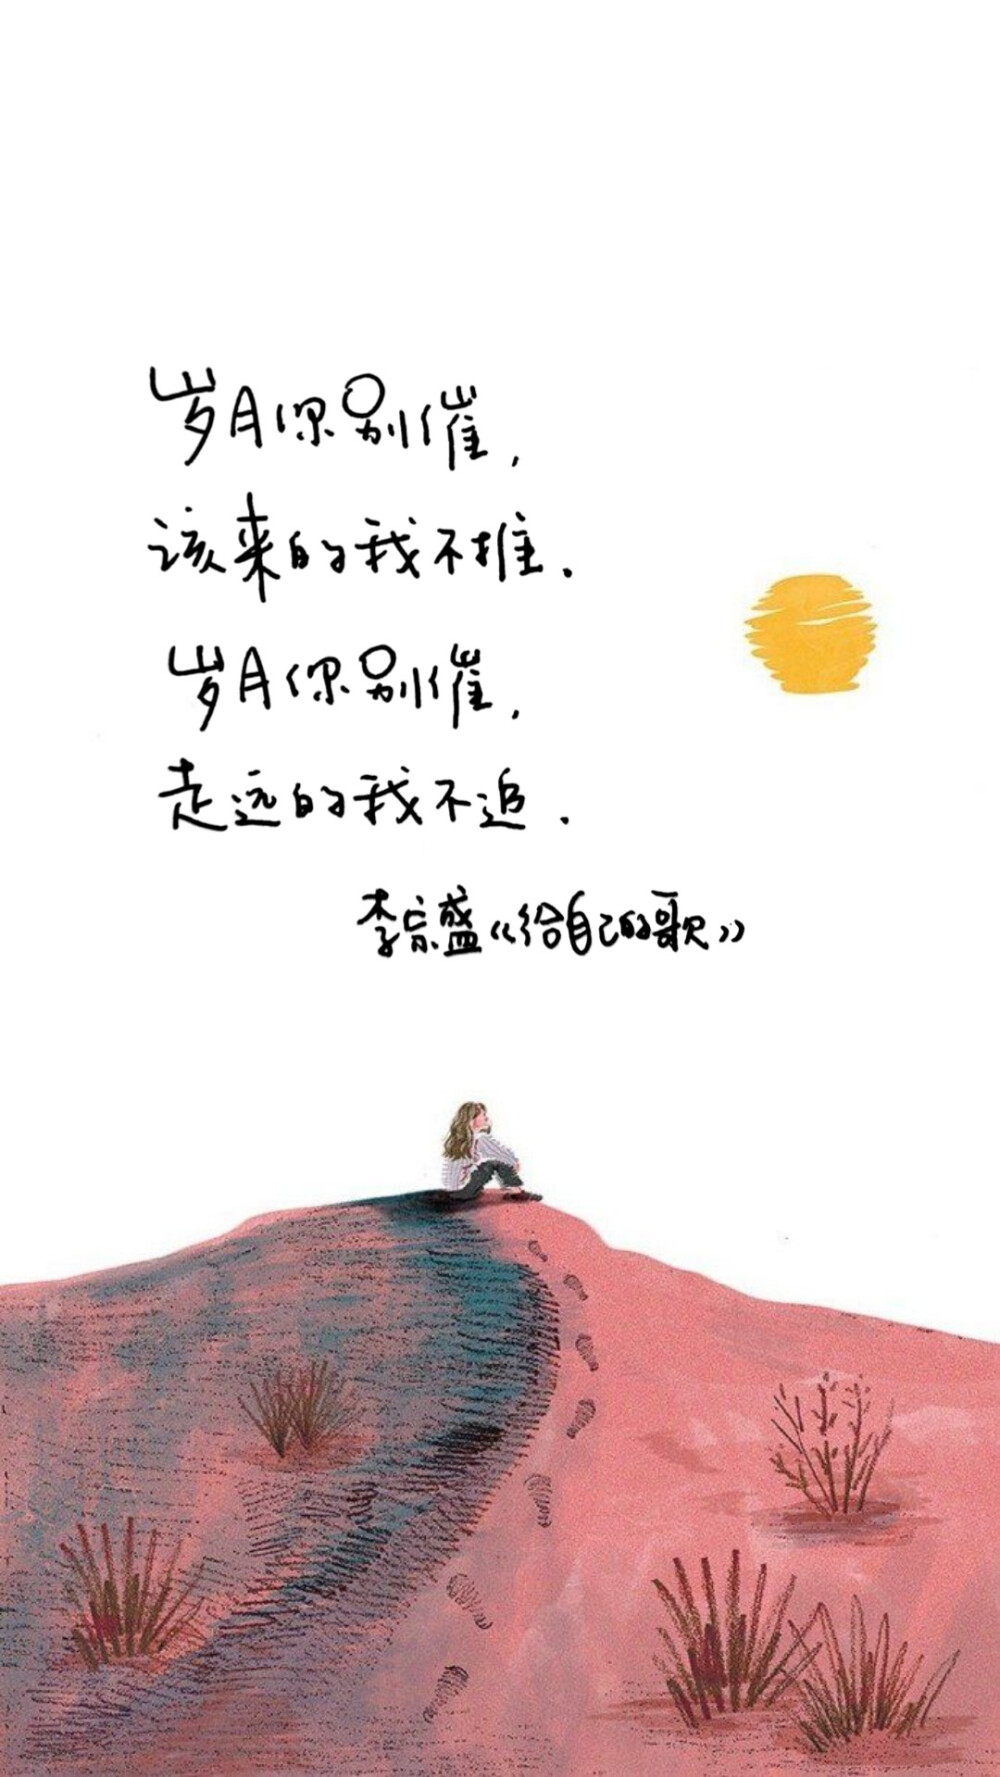 岁月你别催,
该来的我不推.
岁月你别催,
走远的我不追.
李宗盛《给自己的歌》